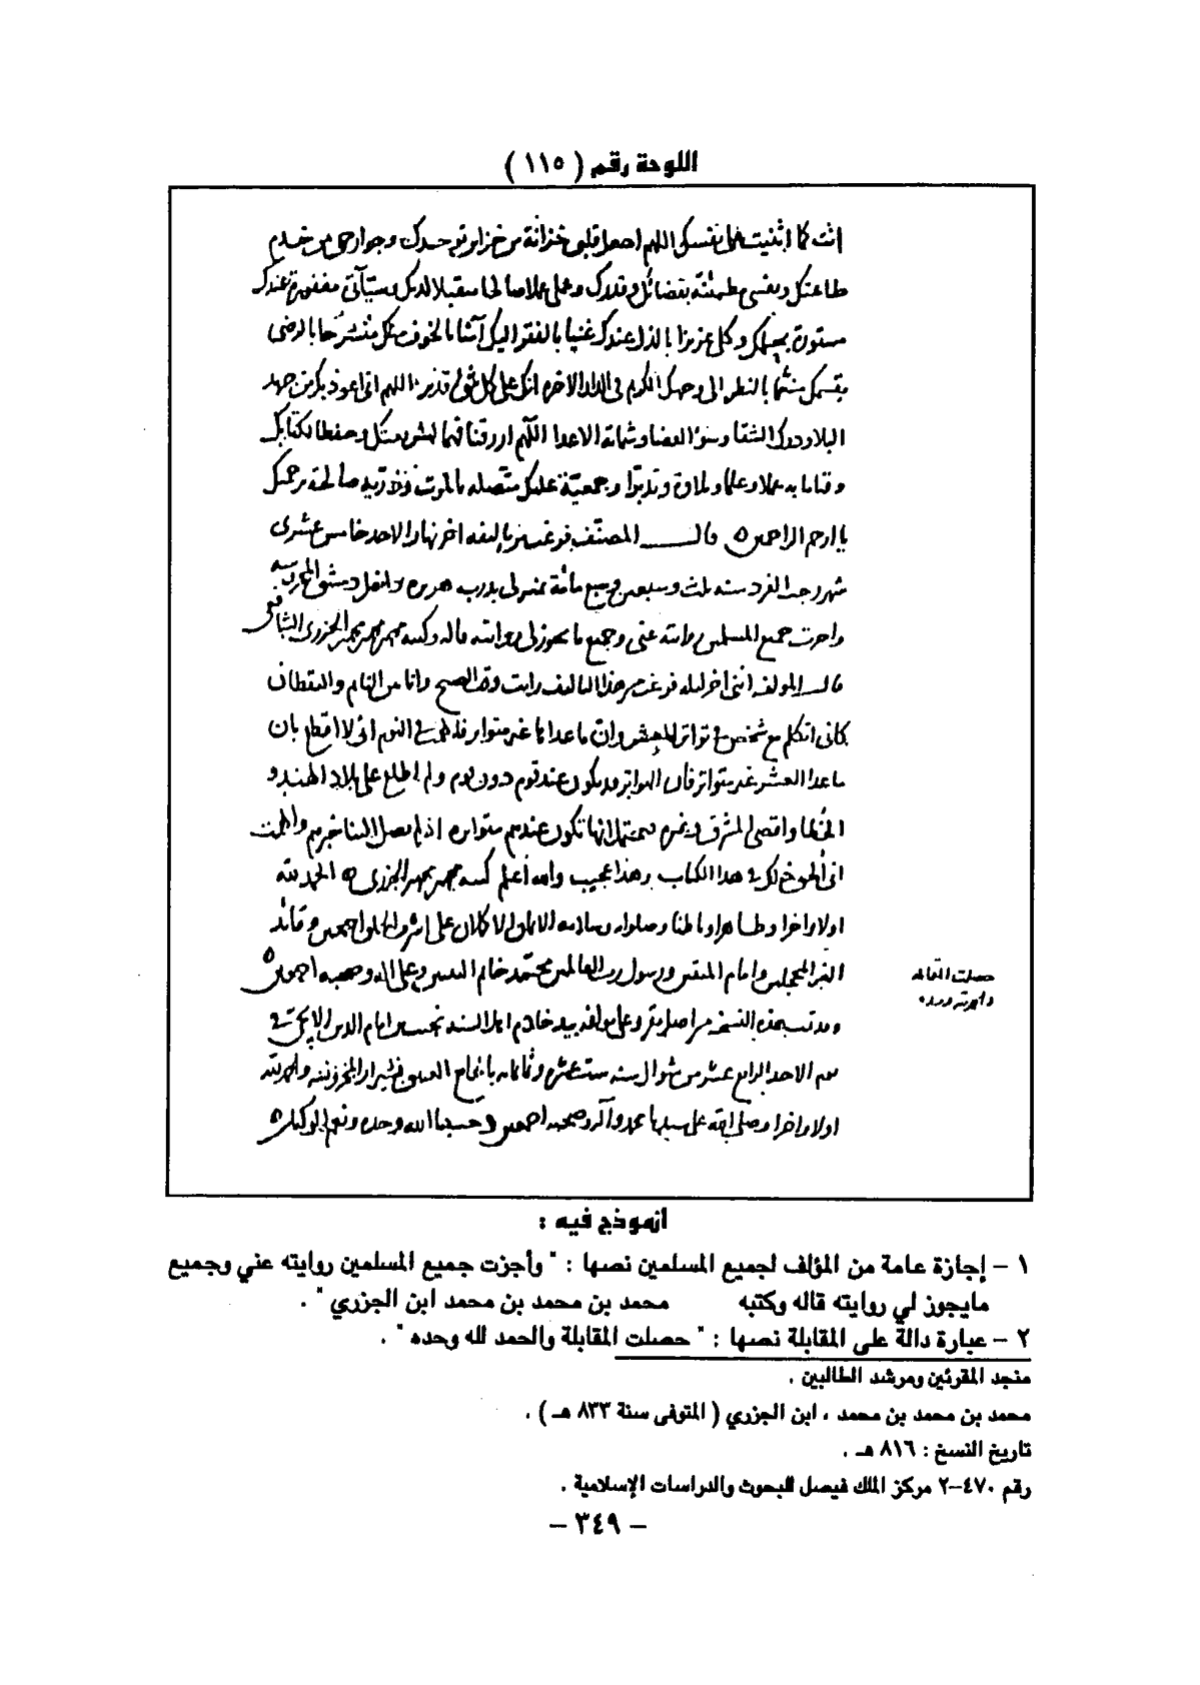 اللوحة رقم ( ١١٥ )
انت كما اثنيت على نفسك اللهم اجعل قلبي خزانة من خزاين توحيدك وجوارحي من خدم
طاعتك ونفسي مطمئنة بقضائك وقدرك وعملي عملا صالحا متقبلا لديك وسيآتي مغفورة عندك
مستورة بحلمك عزيزا بالذل عندك غنيا بالفقر اليك آمنا بالخوف منك منشرحا بالرضى
بقسمك بالنظر الى وجهك الكريم في الدار الاخرة انك على كل شيء قدير اللهم اني اعوذ بك من جهد
البلاء ودرك الشقاء وسوء القضاء وشماتة الاعداء اللهم ارزقنا فهما وحفظا لكتابك
وقياما به عملا وعلما وتلاوة وتدبرا وجمعية عليك متصلة بالموت صالحة برحمتك
يا ارحم الراحمين ه قال المصنف فرغت من تاليفه اخر نهار الاحد خامس عشرى
شهر رجب الفرد سنة ثلث وسبعين وسبع مائة بمنزلي بدرب داخل دمشق المحروسة
واجزت جميع المسلمين روايته عني وجميع ما يجوز لي روايته قاله وكتبه محمد بن محمد بن محمد الجزري الشافعي
قال المولف انني اخر ليلة فرغت من هذا التاليف رايت وقت الصبح وانا بين النايم واليقظان
كاني اتكلم مع شخص في تواتر العشر وان ما عداها غير متواتر في النوم اني لا اقطع بان
ما عدا العشر غير متواتر فان التواتر قد يكون عند قوم دون قوم ولم اطلع على بلاد الهند و
الخطا واقصى المشرق وغيره فيحتمل انها تكون عندهم متواترة اذ لم يصل الينا خبرهم والهمت
اني الحق ذلك في هذا الكتاب وهذا عجيب والله أعلم كتبه محمد بن محمد الجزري ه الحمد لله
اولا واخرا وظاهرا وباطنا وصلواته وسلامه الاتمان الاكملان على اشرف الخلق اجمعين وقائد
الغر المحجلين وامام المتقين ورسول رب العالمين محمد خاتم النبيين وعلى اله وصحبه اجمعين ه
حصلت المقابلة
والحمد لله وحده
وقد كتبت هذه النسخة من اصل مقروء على مولفه بيد خادم اهل السنة
يوم الاحد الرابع عشر من شوال سنة ست عشرة وثمانمائة والحمد لله
اولا واخرا وصلى الله على سيدنا محمد وآله وصحبه اجمعين وحسبنا الله وحده ونعم الوكيل ه
أنموذج فيه :
١ – إجازة عامة من المؤلف لجميع المسلمين نصها : " وأجزت جميع المسلمين روايته عني وجميع
مايجوز لي روايته قاله وكتبه محمد بن محمد بن محمد ابن الجزري " .
٢ – عبارة دالة على المقابلة نصها : " حصلت المقابلة والحمد لله وحده " .
منجد المقرئين ومرشد الطالبين .
محمد بن محمد بن محمد ، ابن الجزري ( المتوفى سنة ٨٣٣ هـ ) .
تاريخ النسخ : ٨١٦ هـ .
رقم ٤٧٠–٢ مركز الملك فيصل للبحوث والدراسات الإسلامية .
– ٣٤٩ –